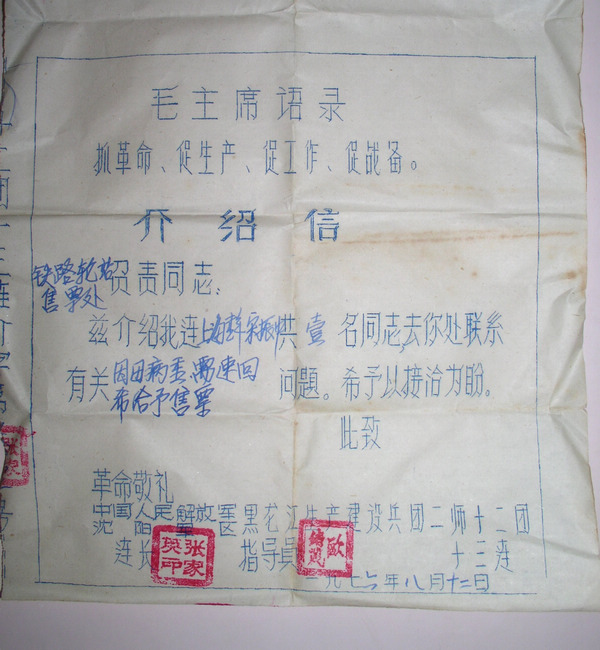 毛主席语录
抓革命、促生产、促工作、促战备。
介绍信
铁路轮站
售票处
负责同志:
兹介绍我连上海 共壹名同志,去你处联系
有关因母病重需速回
希给予售票
问题。希予以接洽为盼。
此致
革命敬礼
中国人民解放军
沈阳 区
黑龙江生产建设兵团二师十二团
连长 指导员 十三连
张家
印
欧
九七六年八月十二日